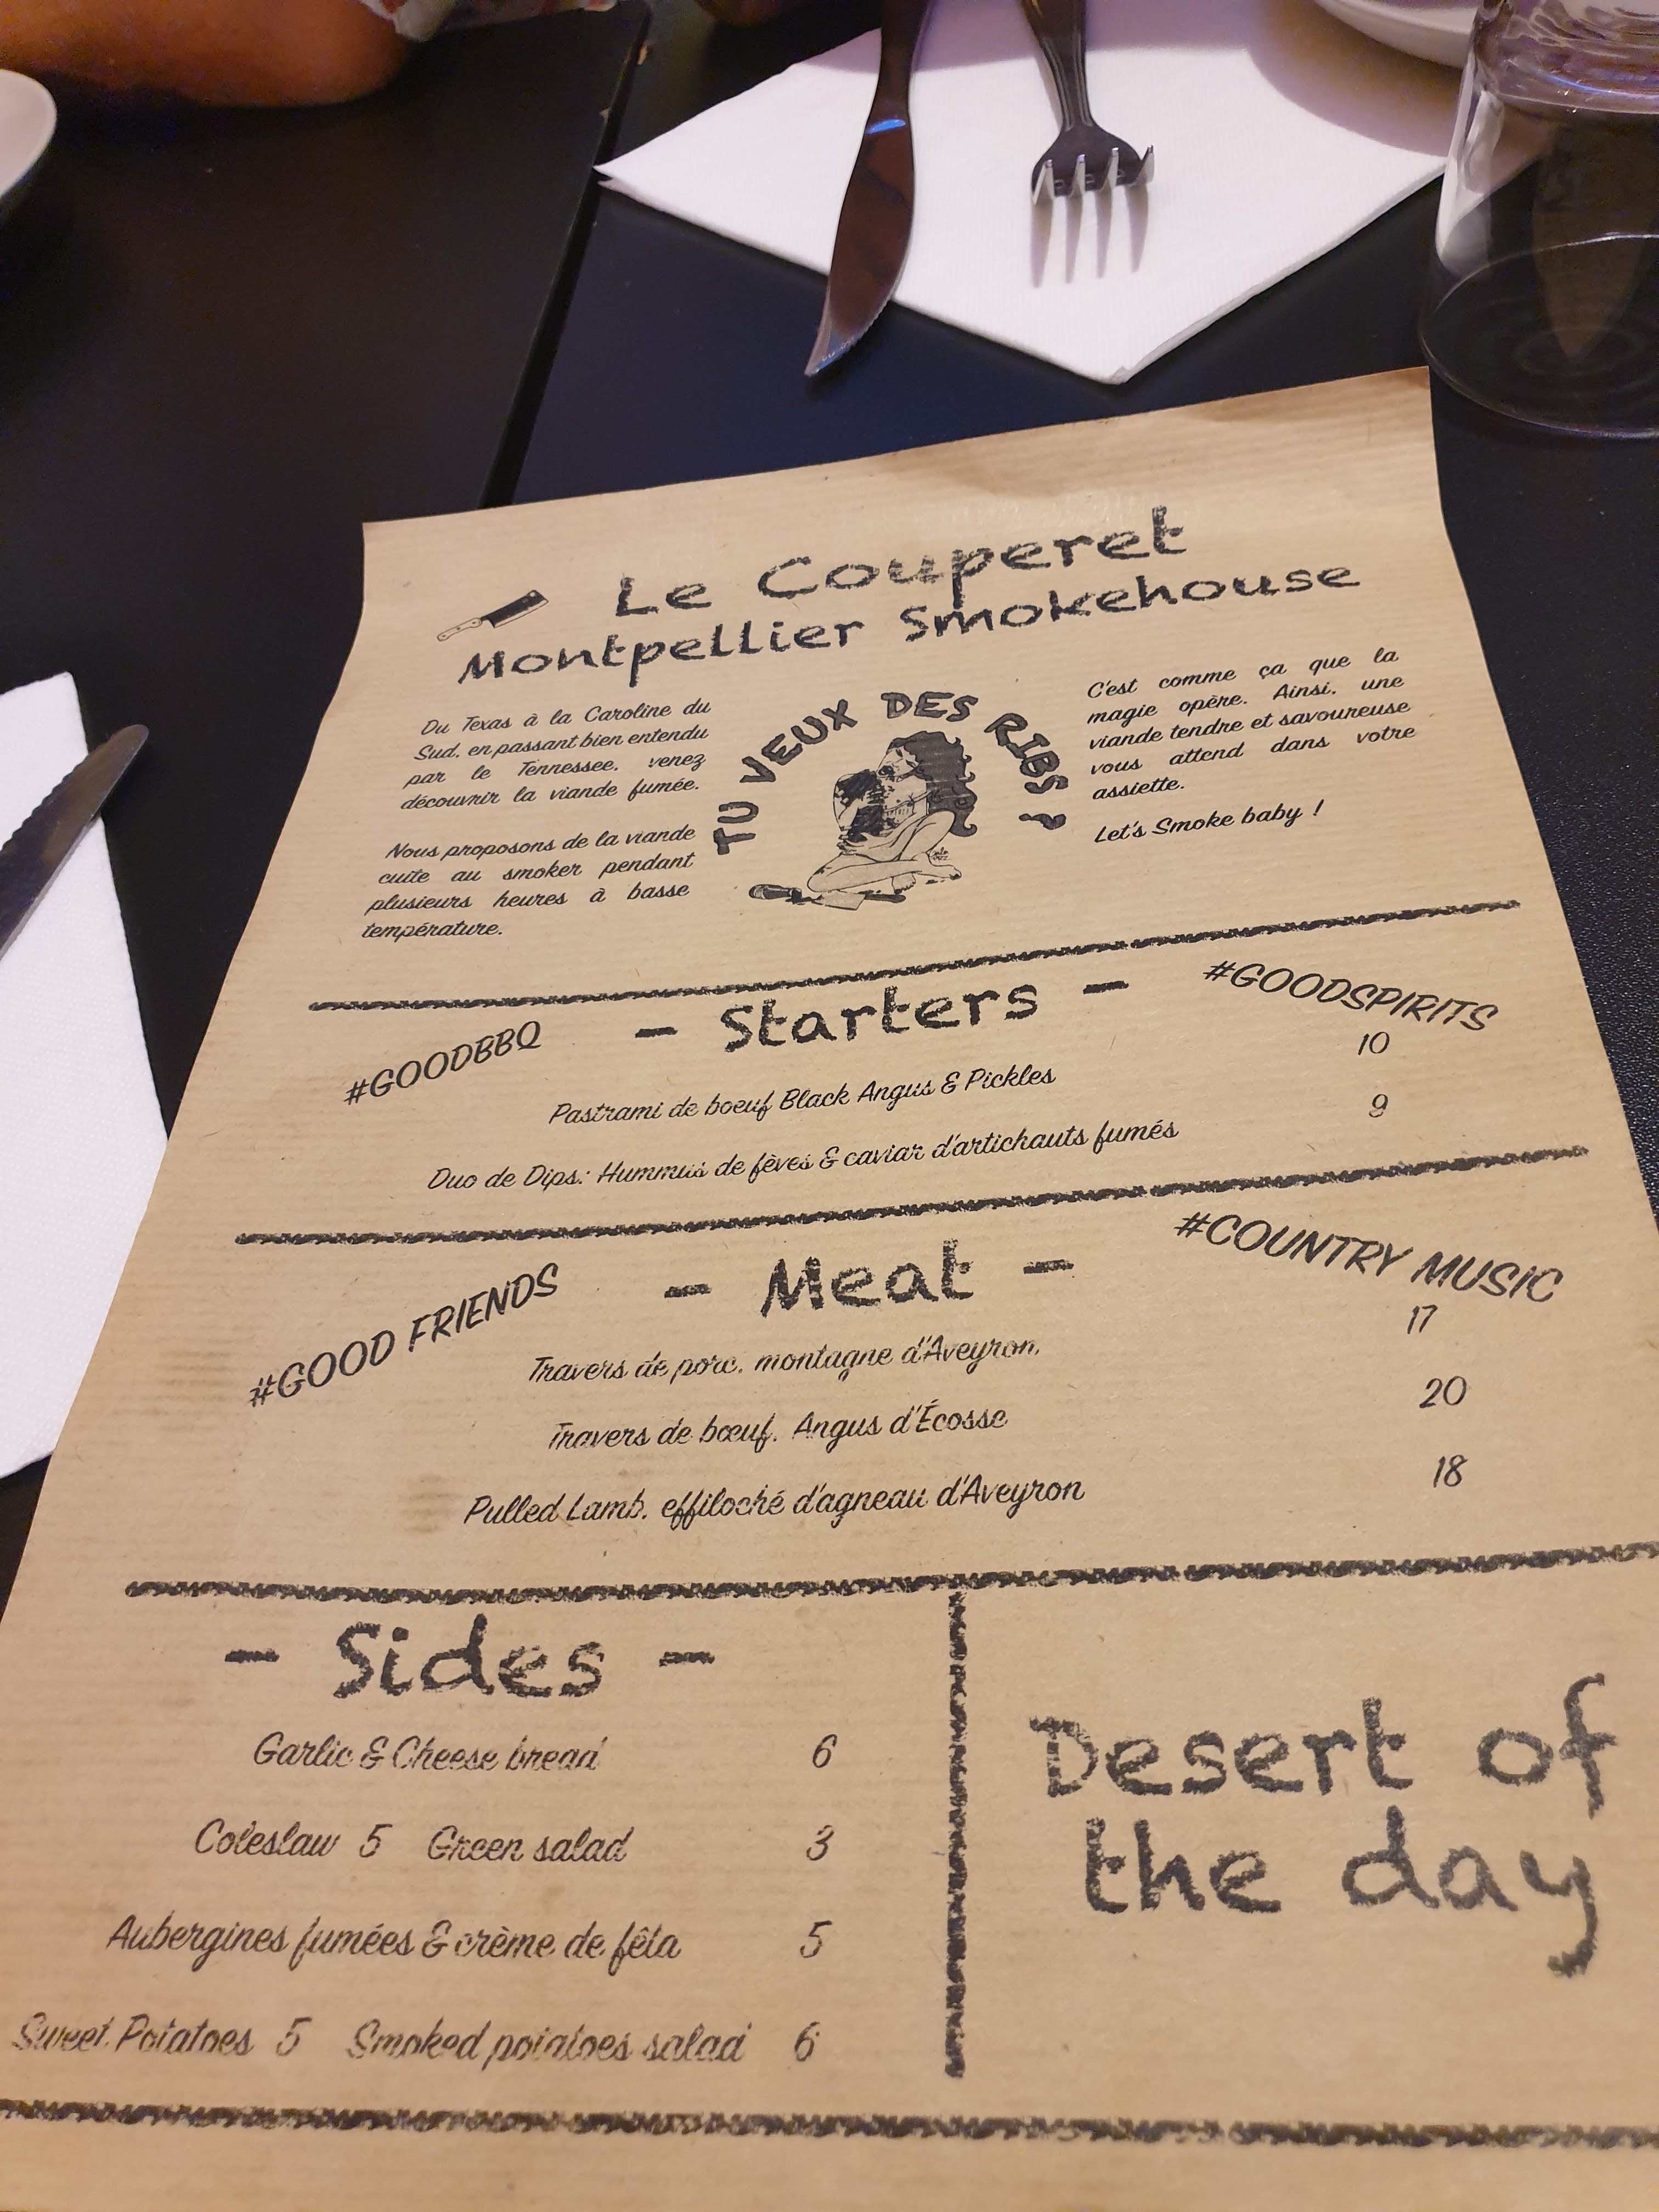 Le Couperet
Montpellier Smokehouse
Du Texas à la Caroline du
Sud, en passant bien entendu
par le Tennessee, venez
découvrir la viande fumée.
Nous proposons de la viande
cuite au smoker pendant
plusieurs heures à basse
température.
TU VEUX DES RIBS ?
C'est comme ça que la
magie opère. Ainsi, une
viande tendre et savoureuse
vous attend dans votre
assiette.
Let's Smoke baby !
#GOODBBQ
- Starters -
#GOODSPIRITS
Pastrami de boeuf Black Angus & Pickles 10
Duo de Dips: Hummus de fèves & caviar d'artichauts fumés 9
#GOOD FRIENDS
- Meat -
#COUNTRY MUSIC
Travers de porc, montagne d'Aveyron, 17
Travers de bœuf, Angus d'Écosse 20
Pulled Lamb, effiloché d'agneau d'Aveyron 18
- Sides -
Garlic & Cheese bread 6
Coleslaw 5 Green salad 3
Aubergines fumées & crème de fêta 5
Sweet Potatoes 5 Smoked potatoes salad 6
Desert of
the day